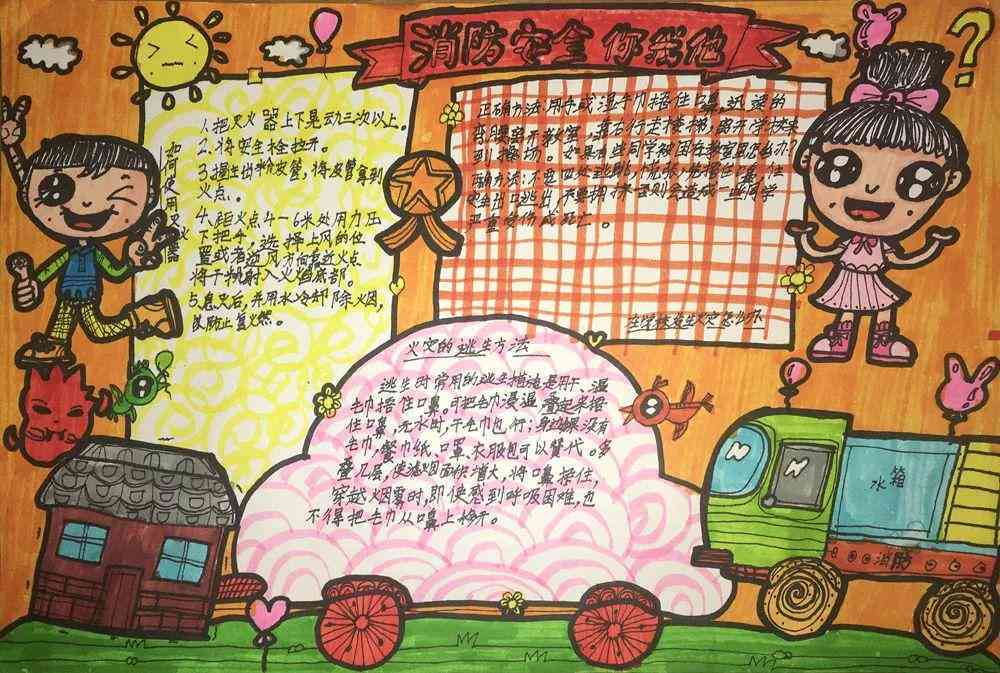 消防安全你我他
如何使用灭火器
1.把灭火器上下晃动三次以上。
2.将安全栓拉开。
3.握住出粉皮管，将皮管导到
火点。
4.距火点4-6米处用力压
下把手，选择上风的位
置或者逆风方向靠近火点
将干粉射入火焰底部。
5.息灭后，并用水冷却除烟，
以防止复燃。
正确方法:用手或湿手巾捂住口鼻，
到操场。如果有些同学被困在教室里怎么办?
正确方法:不要
严重受伤或死亡。
在学校发生火灾怎么办
火灾的逃生方法
逃生时常用的逃生措施是用湿
毛巾捂住口鼻。可把毛巾浸湿，叠起来捂
住口鼻，无水时，干毛巾也行；身边如没有
毛巾，餐巾纸、口罩、衣服也可以替代。多
叠几层，使滤烟面积增大，将口鼻捂住，
穿越烟雾时，即使感到呼吸困难，也
不得把毛巾从口鼻上移开。
水箱
消防